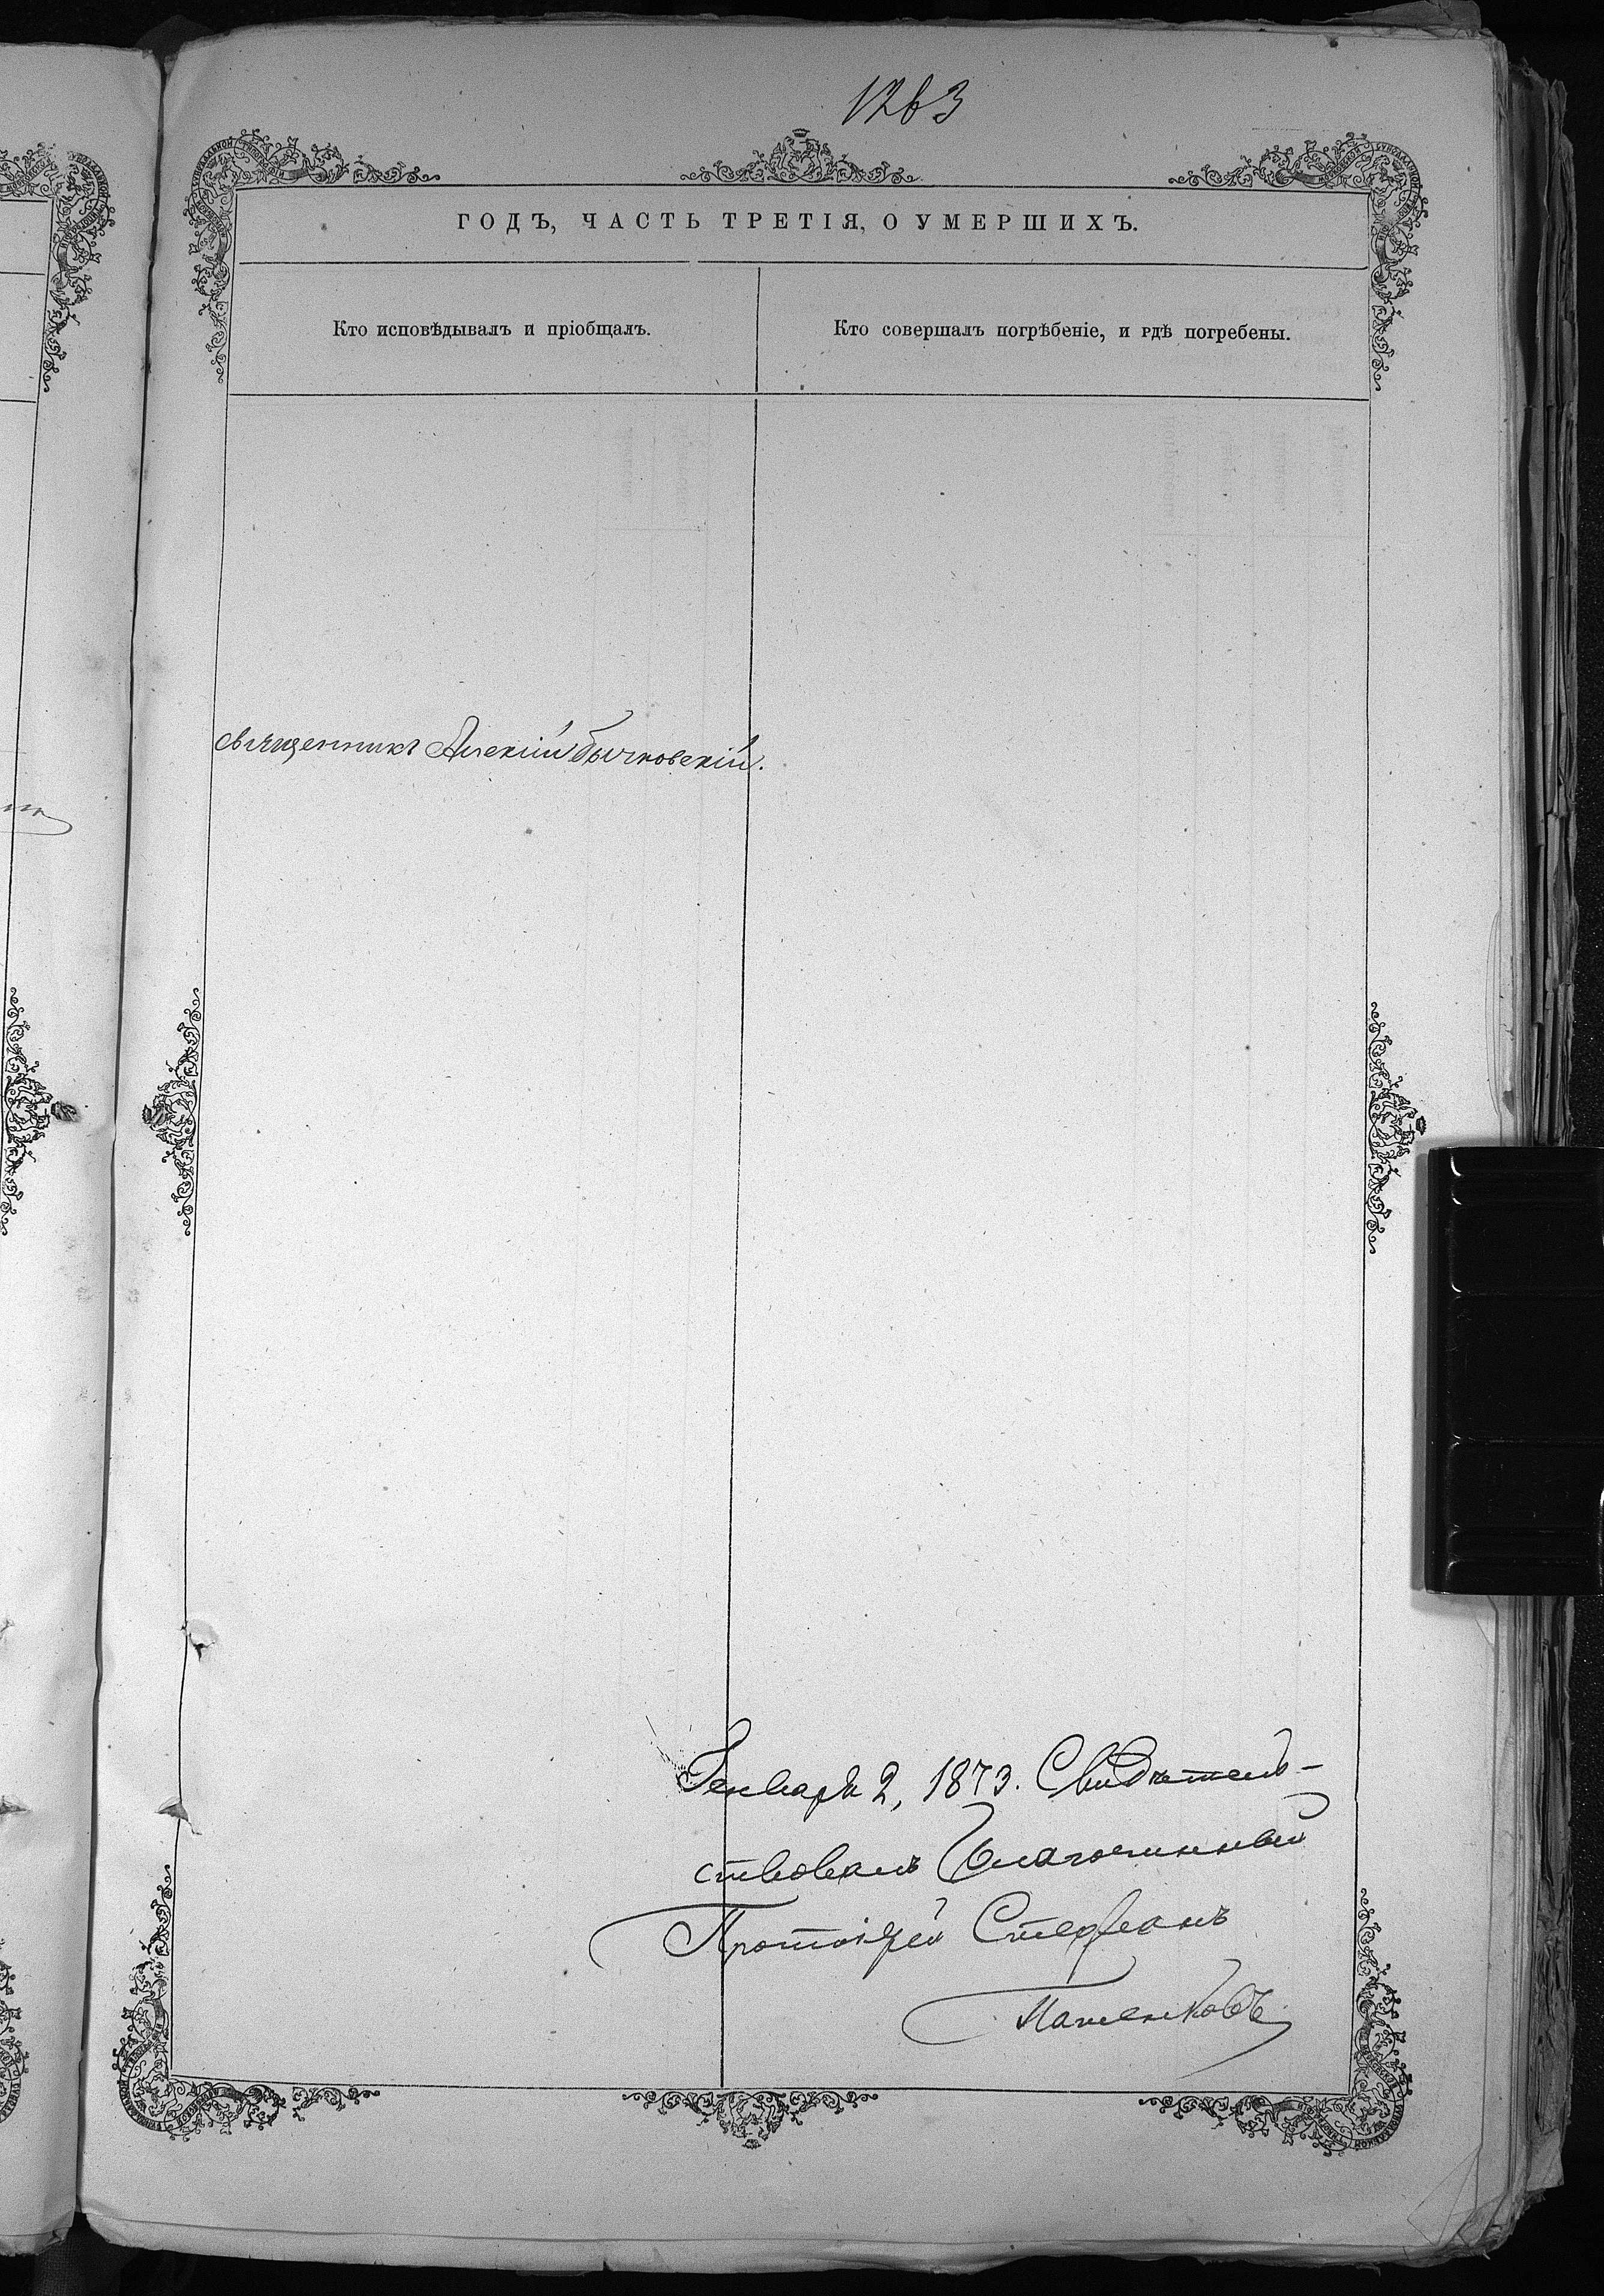 1263
ГОДЪ, ЧАСТЬ ТРЕТІЯ, О УМЕРШИХЪ.
Кто исповѣдывалъ и пріобщалъ.
Кто совершалъ погрѣбеніе, и гдѣ погребены.
священникъ Алекій Бычковскій.
Генваря 2, 1873. Свидѣтель-
ствовалъ Благочинный
Протоіерей Стефанъ